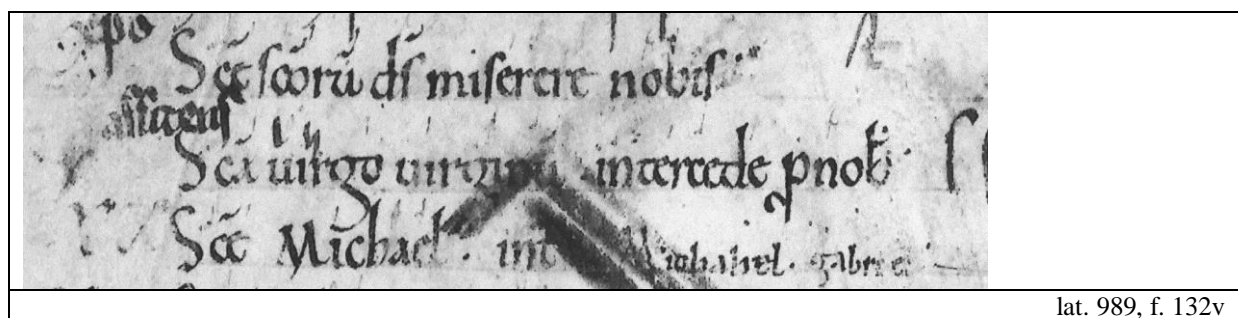 Scē scōrū ds̄ miserere nobis
Scā uirgo uirginū intercede p nob
Scē Michael . int Michahel . gabriel
lat. 989, f. 132v